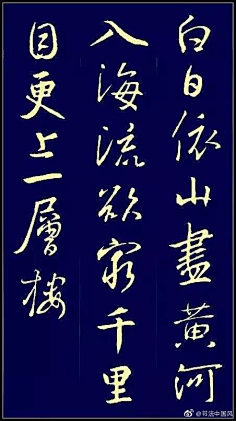 白日依山盡黃河
入海流欲窮千里
目更上一層樓
@书法中国风